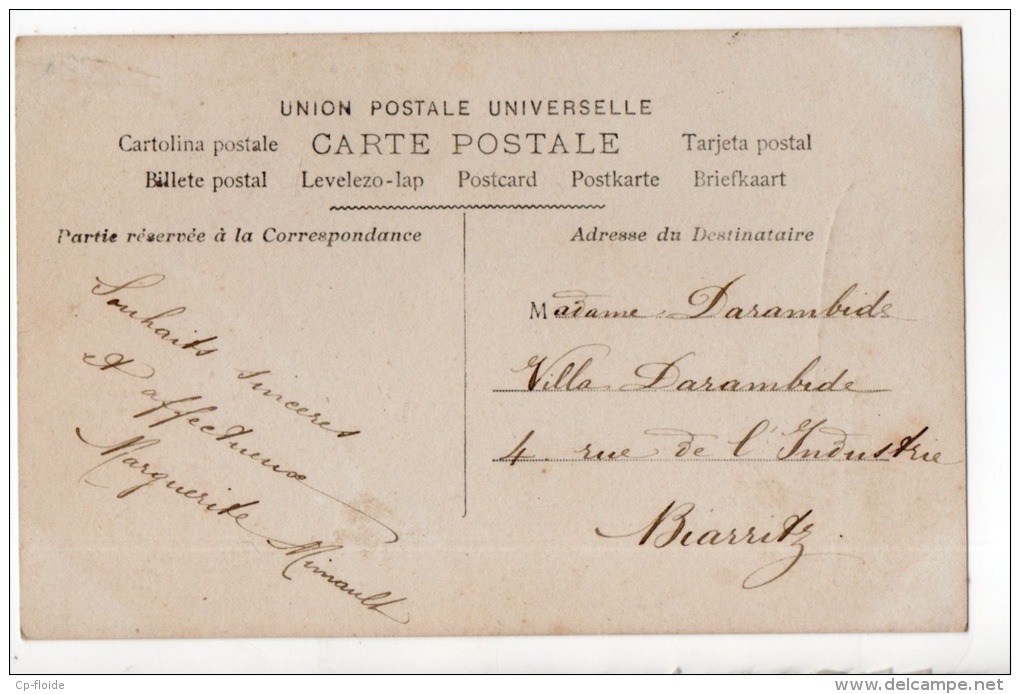 UNION POSTALE UNIVERSELLE
Cartolina postale CARTE POSTALE Tarjeta postal
Billete postal Levelezo-lap Postcard Postkarte Briefkaart
Partie réservée à la Correspondance
Souhaits sincères
et affectueux
Marguerite Minault
Adresse du Destinataire
Madame Darambide
Villa Darambide
4 rue de l'Industrie
Biarritz
Cp-floide
delcampe.net